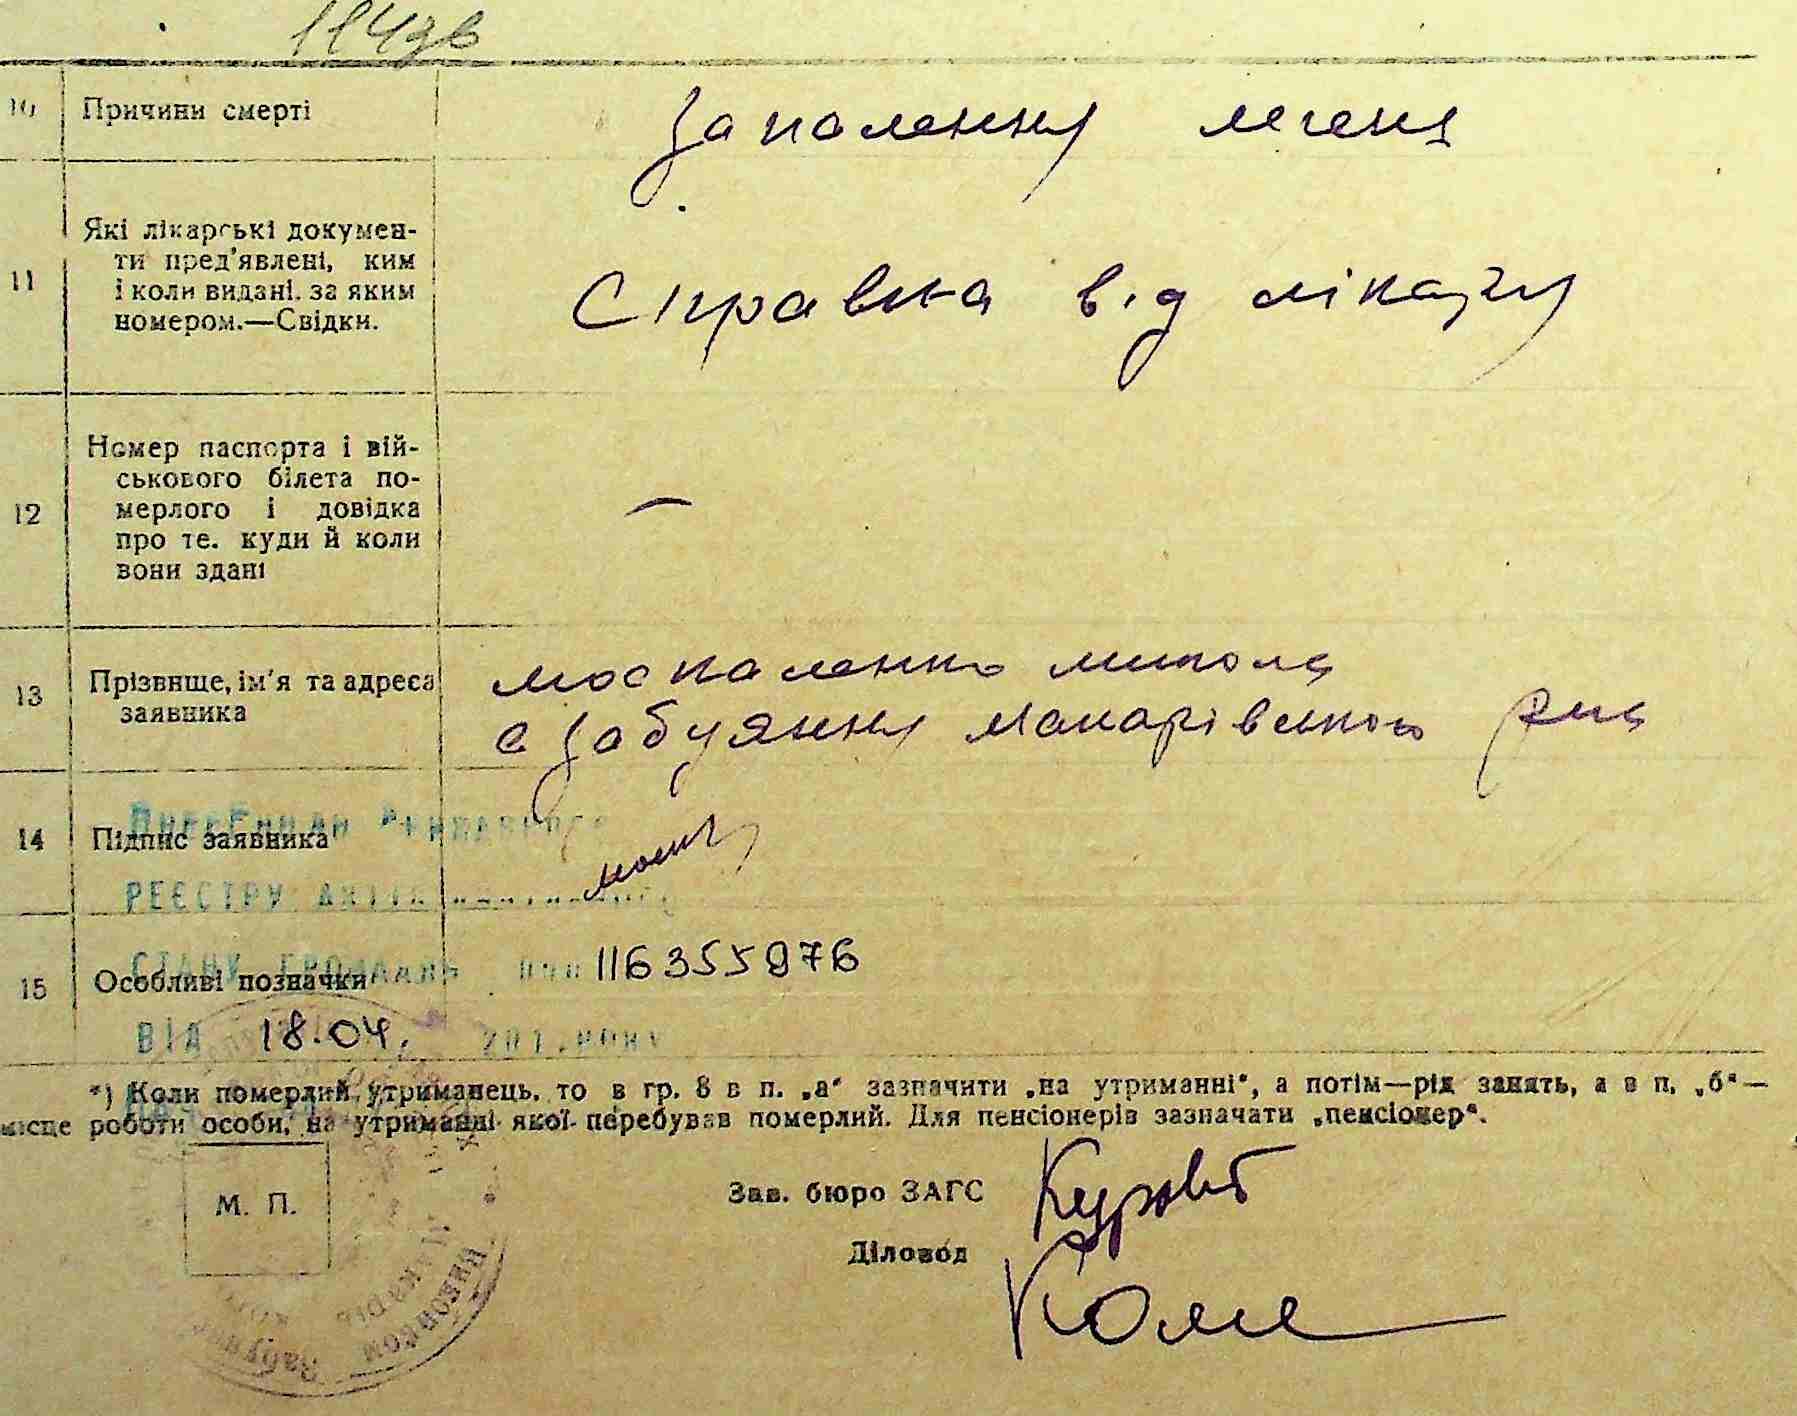 10 Причини смерті
Запалення легень
11 Які лікарські докумен-
ти пред'явлені, ким
і коли видані. за яким
номером.—Свідки.
Справка від лікаря
12 Номер паспорта і вій-
ськового білета по-
мерлого і довідка
про те. куди й коли
вони здані
—
13 Прізвище, ім'я та адреса
заявника
москаленко микола
с Забуяння макарівського р-на
14 Підпис заявника
РЕЄСТРУ АКТІВ
СТАНУ ГРОМАДЯН 116355976
15 Особливі позначки
ВІД 18.04. 201 .РОКУ
*) Коли померлий утриманець. то в гр. 8 в п. „а“ зазначити „на утриманні“, а потім—рід занять, а в п. „б“—
місце роботи особи, на утриманні якої перебував померлий. Для пенсіонерів зазначати „пенсіонер“.
М. П.
Зав. бюро ЗАГС
Діловод